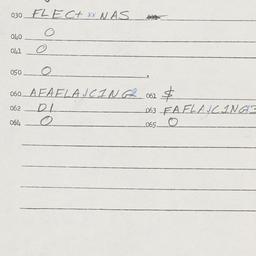 030 FLEC+ xx NAS
040 0
041 0
050 0
060 AFAFLAJCING2 061 $
062 D1 063 FAFLAJCING13
064 0 065 0